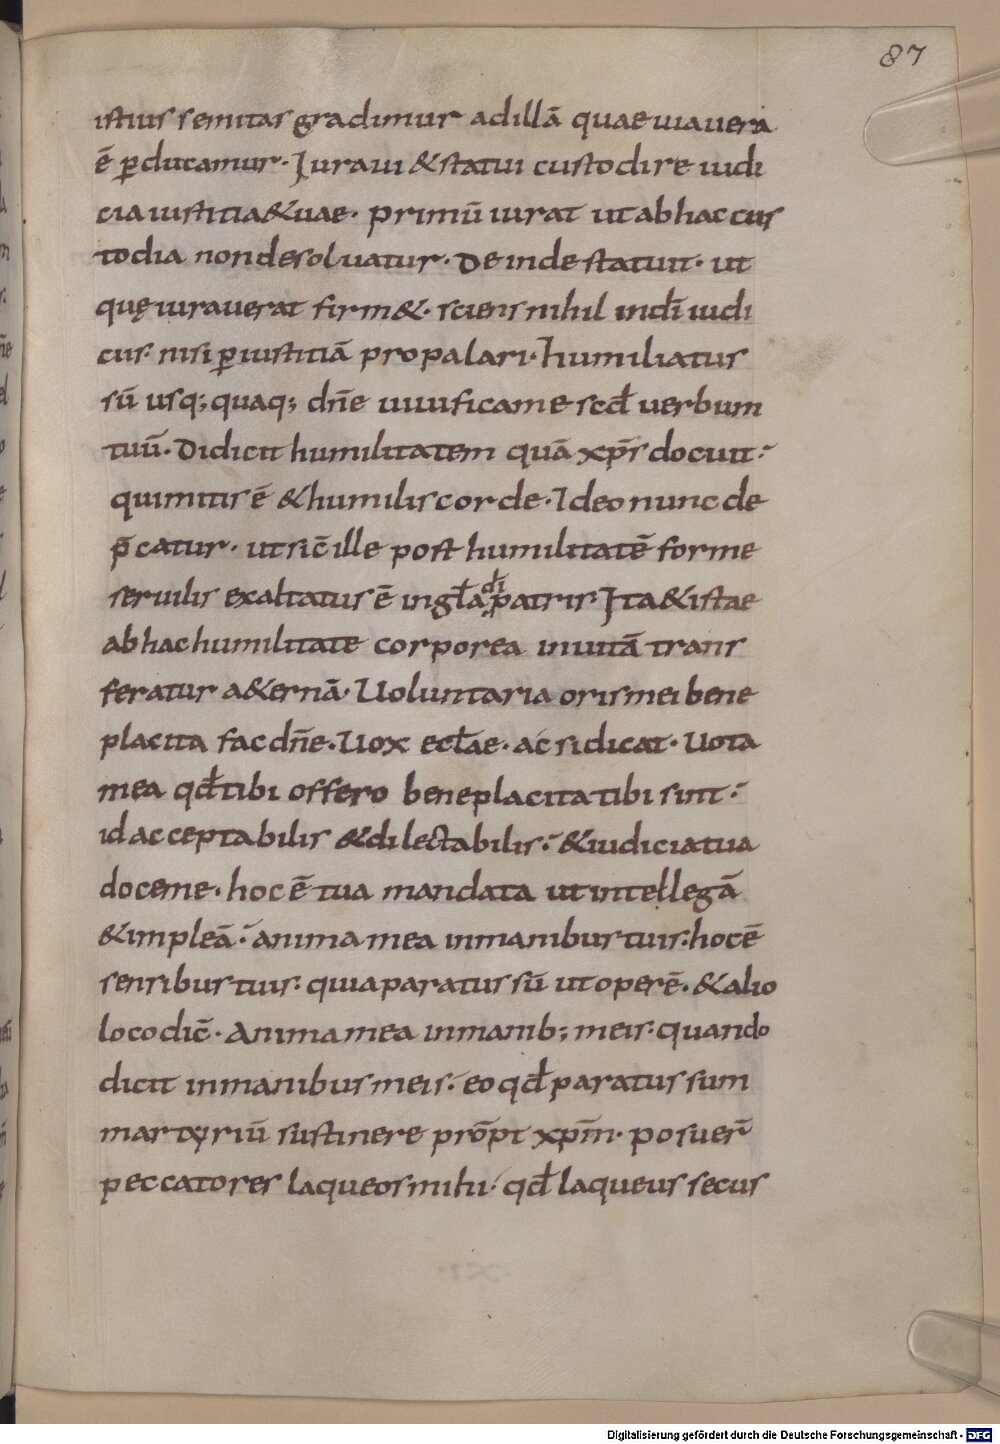 87
istius semitas gradimur adillā quae uia uera
ē ꝑducamur. Iuraui & statui custodire iudi
cia iustitia&uae. primū iurat ut ab hac cus
todia non desoluatur. Deinde statuit. ut
quę iurauerat firm&. sciens nihil indī iudi
cus. nisi ꝑ iustitiā propalari. humiliatus
sū usq; quaq; dn̄e uiuifica me scd̄ uerbum
tuū. Didicit humilitatem quā xp̄s docuit.
qui mitis ē & humilis corde. Ideo nunc de
p̄catur. ut sic̄ ille post humilitatē forme
seruilis exaltatus ē in gła dī patris. Ita & istae
ab hac humilitate corporea in uitā trans
feratur a&ernā. Uoluntaria oris mei bene
placita fac dn̄e. Uox ecłae. ac si dicat. Uota
mea qđ tibi offero beneplacita tibi sint.
id acceptabilis & dilectabilis. & iudicia tua
doce me. hoc ē tua mandata ut intellegā
& impleā. anima mea in manibus tuis. hoc ē
sensibus tuis. quia paratus sū ut operē. & alio
loco dic̄. Anima mea in manib; meis. quando
dicit in manibus meis. eo qđ paratus sum
martyriū sustinere prōpt xp̄m. posuer̄
peccatores laqueos mihi. qđ laqueus secus
Digitalisierung gefördert durch die Deutsche Forschungsgemeinschaft - DFG